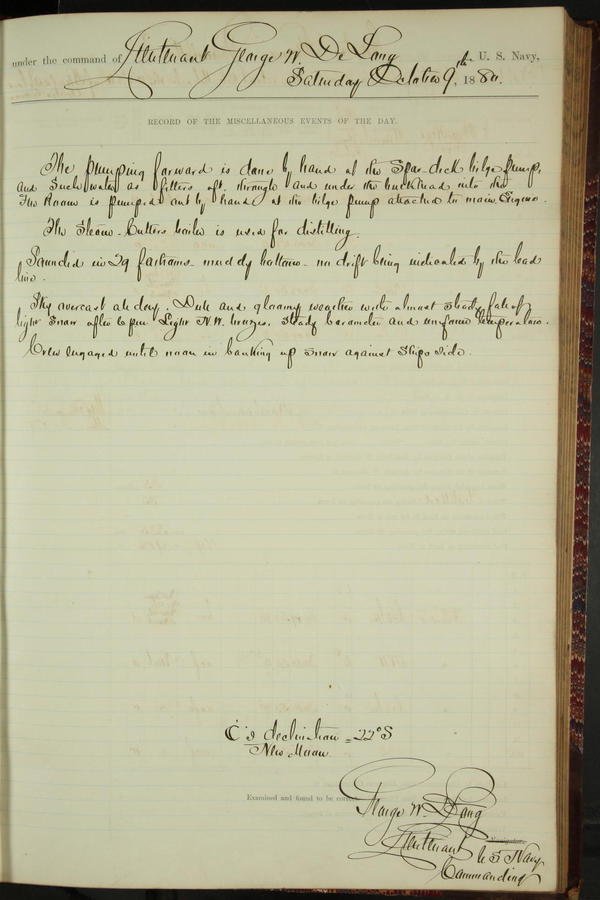 under the command of Lieutenant George W. De Long, U. S. Navy,
Saturday October 9th, 1880.
RECORD OF THE MISCELLANEOUS EVENTS OF THE DAY.
The pumping forward is done by hand at the Spar-deck bilge pump,
and such water as filters aft through and under the bulkhead into the
Fire Room is pumped out by hand at the bilge pump attached to main Engine.
The Steam-Cutters boiler is used for distilling.
Sounded in 29 fathoms - muddy bottom - no drift being indicated by the lead
line.
Sky overcast all day. Dull and gloomy weather with almost steady fall of
light snow after 6 pm. Light N.W. breezes, steady barometer and uniform temperature.
Crew engaged until noon in banking up snow against Ships side.
☾'s declination = 22° S
New Moon.
Examined and found to be correct.
George W. De Long
Navigator.
Lieutenant U S Navy
Commanding